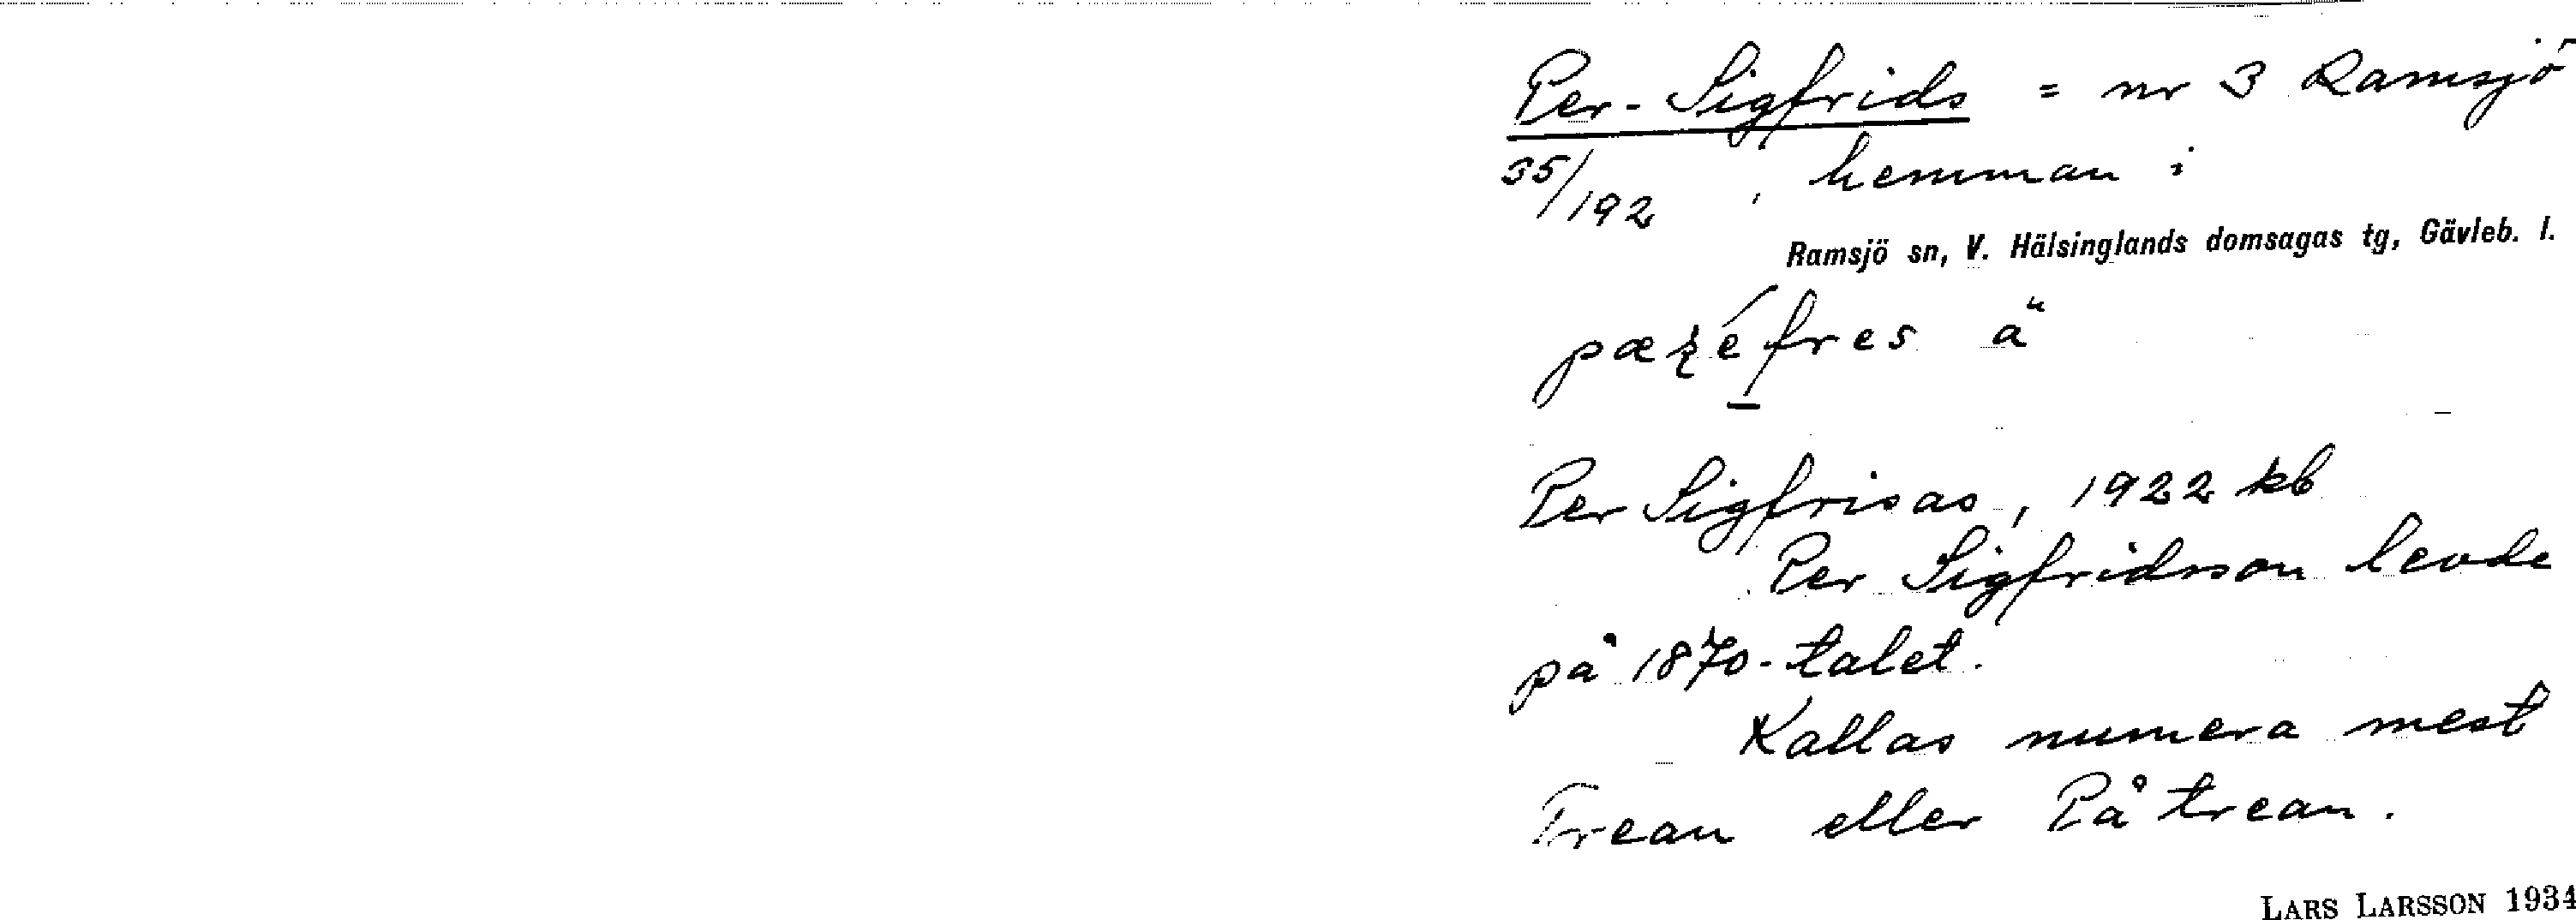 Per-Sigfrids = nr 3 Ramsjö
35/192, hemman i
Ramsjö sn, V. Hälsinglands domsagas tg, Gävleb. l.
Per Sigfrisas, 1922 kb
Per Sigfridsson levde
på 1870-talet.
Kallas numera mest
Trean eller På trean.
LARS LARSSON 1934